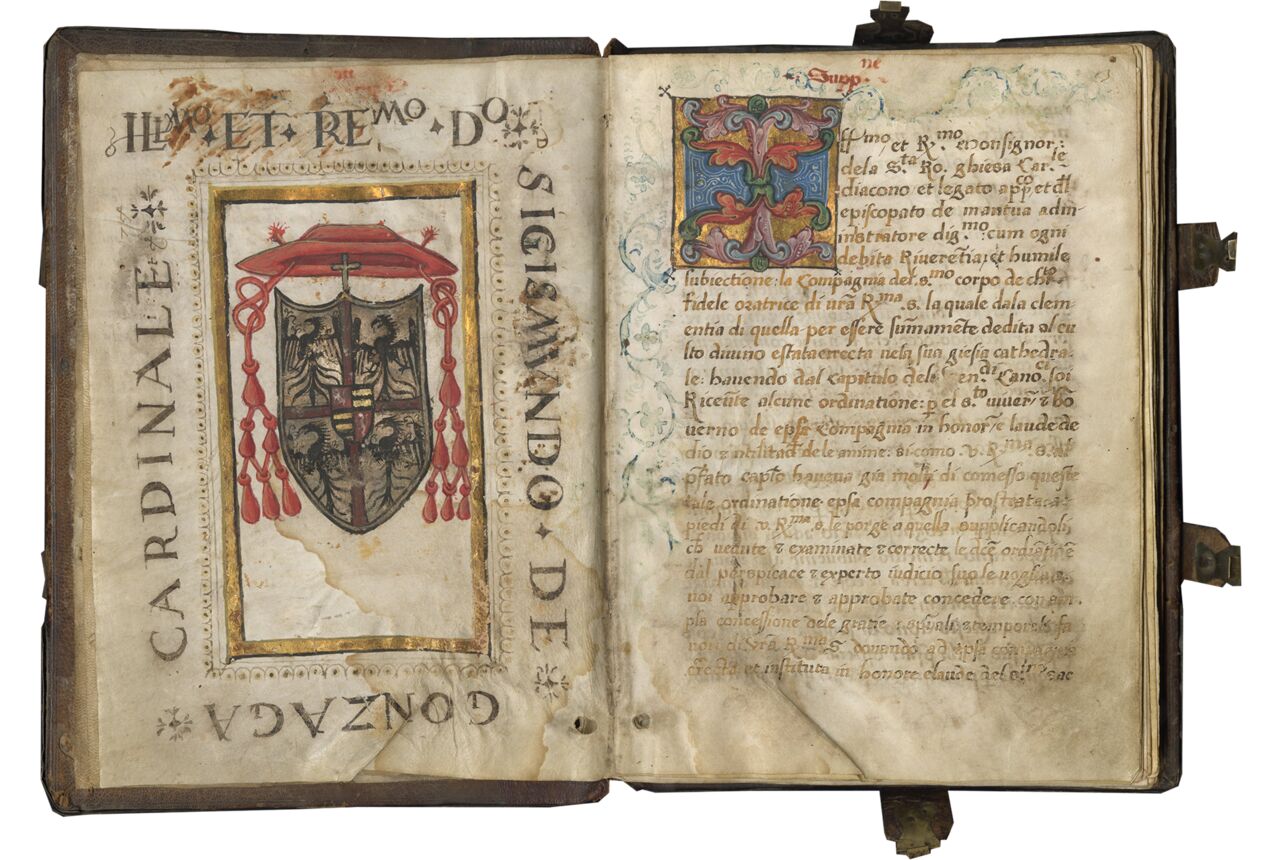 ILLMO · ET · REMO · DO
SIGISMVNDO · DE
GONZAGA
CARDINALE
Suppne
Illmo et Rmo Monsignor:
dela Sta Ro. ghiesa Carle
diacono et legato appco et dl
episcopato de mantua admi-
nistratore digmo: cum ogni
debita Riuerētia: et humile
subiectione: la Compagnia del smo corpo de chro
fidele oratrice di vrā Rma s. la quale dala clem-
entia di quella per essere sumāmēte dedita al cu
lto diuino estata errecta nela sua giesia cathedra-
le: hauendo dal capitulo deli Rendi Canoci soi
Riceute alcune ordinatione: p el sto viuer 7 Go
uerno de epsa Compagnia in honore 7 laude de
dio 7 utilitad dele anime: si como .v. Rma s. al
pfato capto haueua gia molti di comesso queste
tale ordinatione epsa compagnia prostrata ca:
piedi di .v. Rma .s. le porge a quella supplicandoli
ch vedute 7 examinate 7 correcte le dcte ordinatione
dal perspicace 7 experto iudicio suo le voglia
approbare 7 approbate concedere con am-
pla concessione dele gratie spūali 7 temporale fa
uori di vrā Rma S. donando ad epsa compagnia
errecta et instituta in honore e laude del s sac